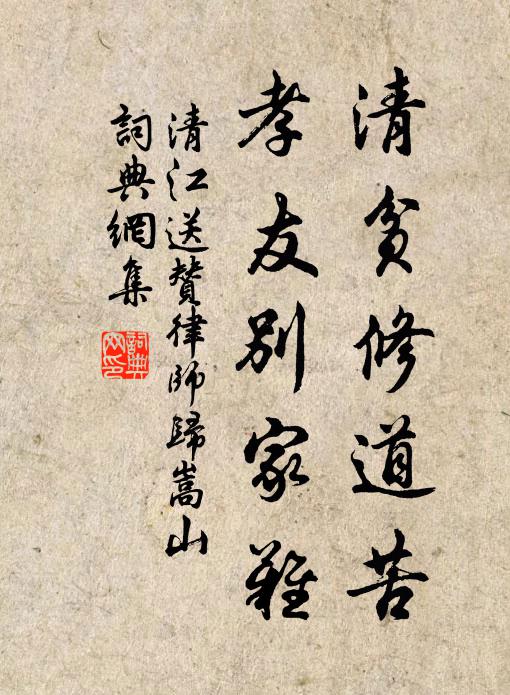 清貧修道苦
孝友別家難
清江送贊律師歸嵩山
詞典網集
詞典網印